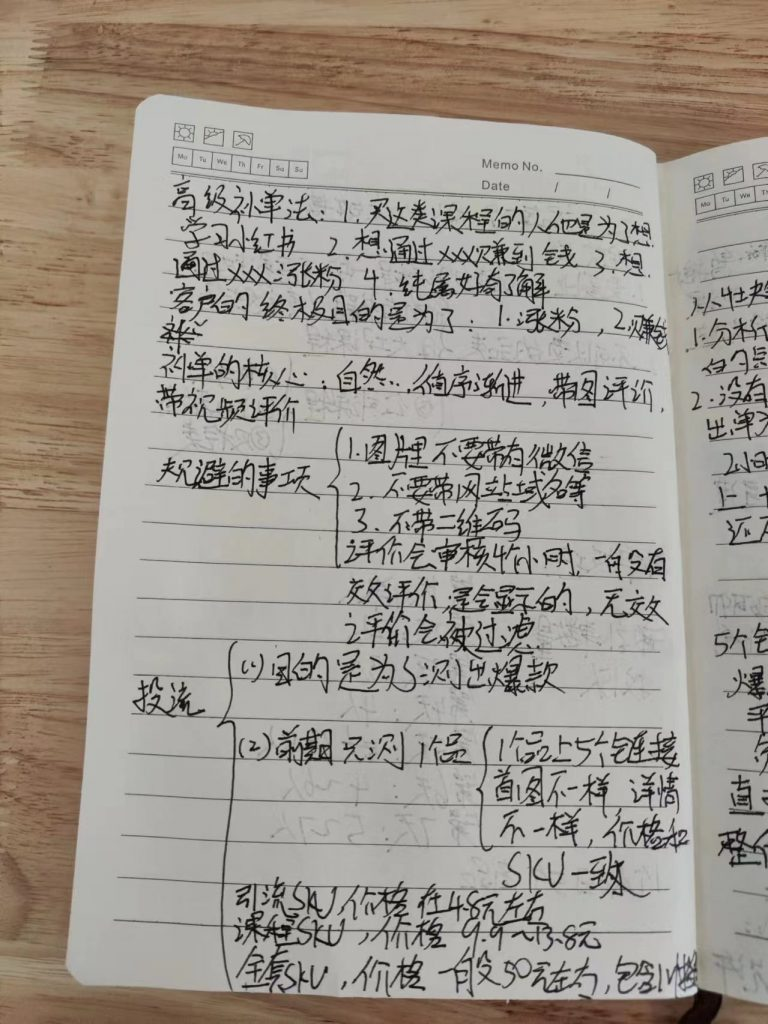 Mo Tu We Th Fr Sa Su
Memo No.
Date / /
高级补单法: 1. 买这类课程的人他是为了想
学习小红书 2. 想通过xxx赚到钱 3. 想
通过xxx涨粉 4. 纯属好奇了解
客户的终极目的是为了: 1. 涨粉, 2. 赚钱
补单的核心: 自然..., 循序渐进, 带图评价,
带视频评价
规避的事项
1. 图片里不要带有微信
2. 不要带网站域名等
3. 不带二维码
评价会审核4个小时, 一般没有
交评价, 是会显示的, 无效
评价会被过滤
投流
(1) 目的是为了测出爆款
(2) 前期只测1个品
1个品上5个链接
首图不一样 详情
不一样, 价格和
SKU一致
引流SKU, 价格在4.8元左右
课程SKU, 价格 9.9~13.8元
全套SKU, 价格一般50元左右, 包含
Mo Tu We Th
1. 分析
2. 没有
出单
5个
爆
平
直
整个